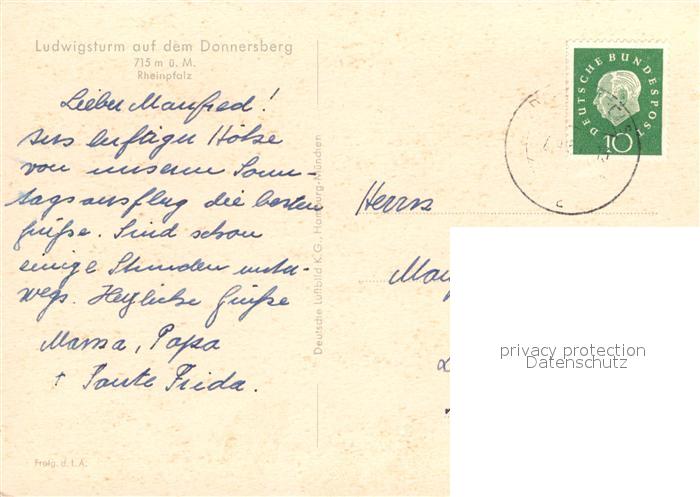 Ludwigsturm auf dem Donnersberg
715 m ü. M.
Rheinpfalz
Lieber Manfred!
Aus luftiger Höhe
von unserm Sonn-
tagsausflug die besten
Grüße. Sind schon
einige Stunden unter-
wegs. Herzliche Grüße
Mama, Papa
+ Tante Frida.
Freig. d. L.A.
Deutsche Luftbild K.G. Hamburg-München
DEUTSCHE BUNDESPOST
10
Herrn
privacy protection
Datenschutz